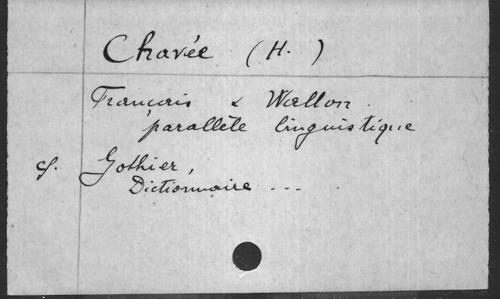 Chavée (H.)
Français & Wallon.
parallèle linguistique
cf. Gothier,
Dictionnaire ...